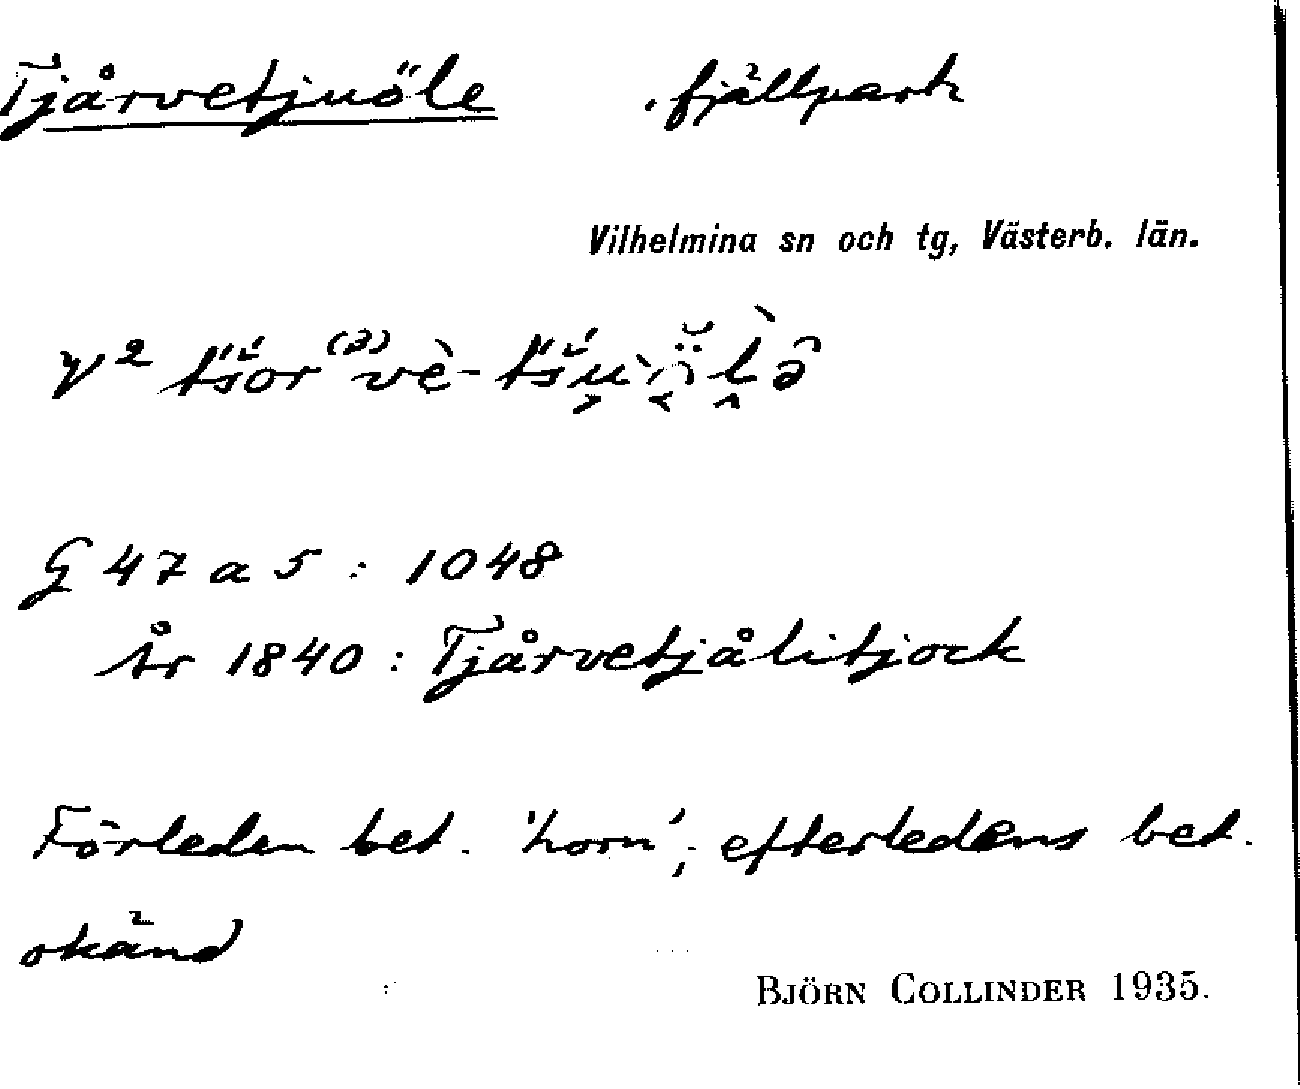 Tjårvetjuöle fjällpark
Vilhelmina sn och tg, Västerb. län.
G 47 a 5 : 1048
År 1840 : Tjårvetjålitjock
Förleden bet. 'horn', efterledens bet.
okänd
BJÖRN COLLINDER 1935.